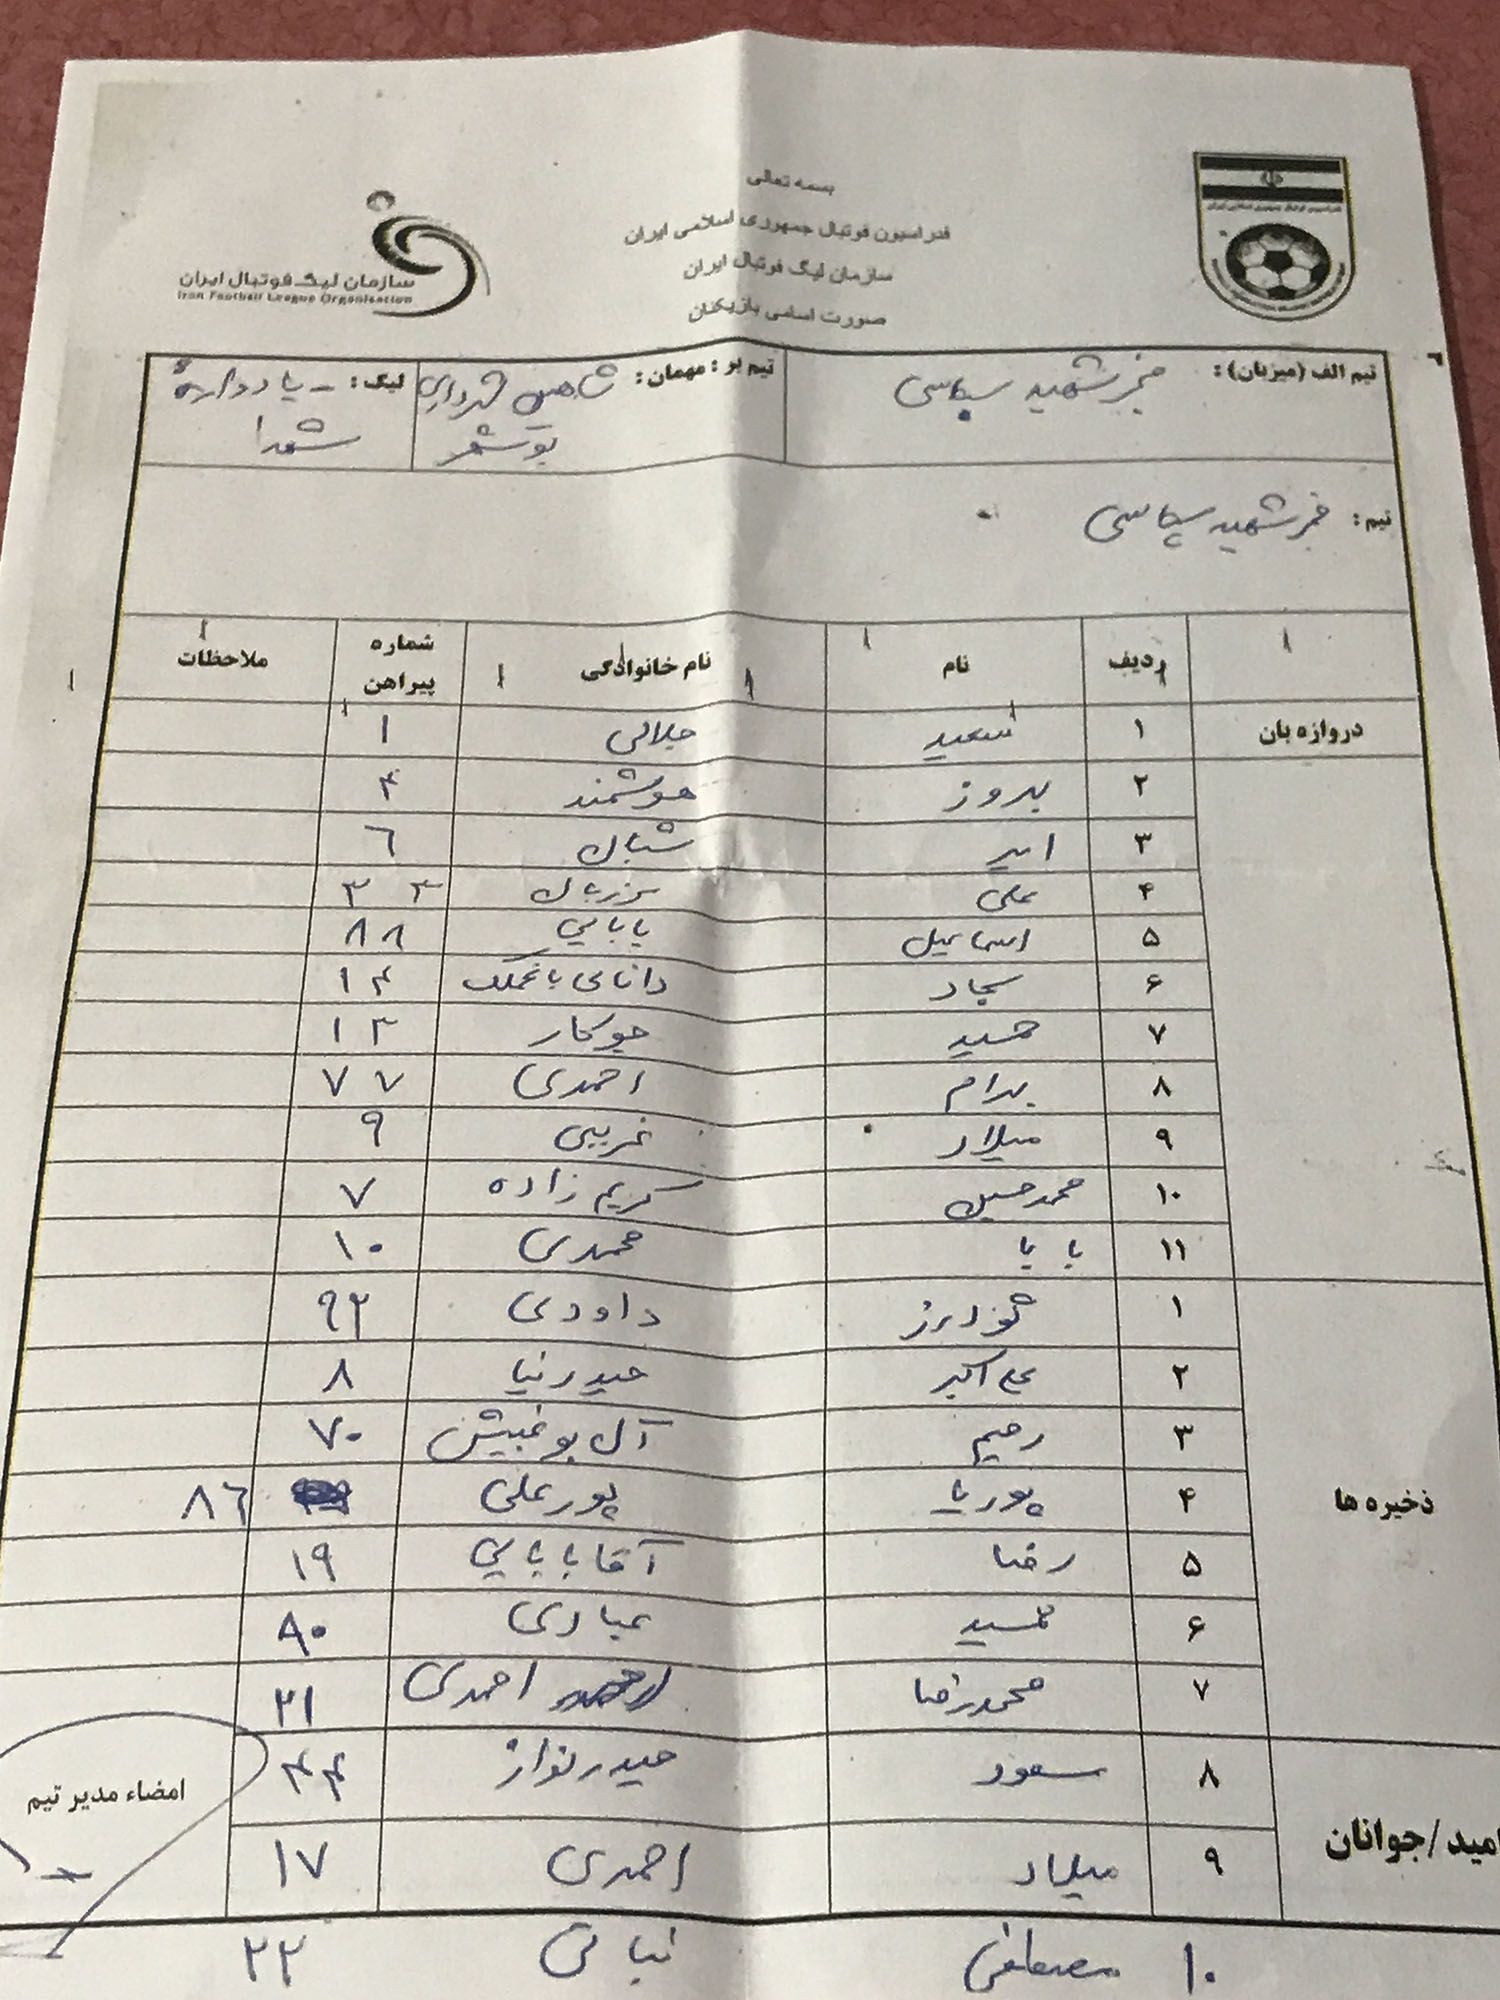 بسمه تعالی
فدراسیون فوتبال جمهوری اسلامی ایران
سازمان لیگ فوتبال ایران
صورت اسامی بازیکنان
سازمان لیگ فوتبال ایران
Iran Football League Organisation
تیم الف (میزبان): فجر شهید سپاسی
تیم بر: مهمان: شاهین شهرداری بوشهر
لیگ: یادواره شهدا
تیم: فجر شهید سپاسی
ردیف نام نام خانوادگی شماره پیراهن ملاحظات
دروازه بان ۱ سعید جلالی ۱
۲ بهروز هوشمند ۴
۳ امیر شبان ۶
۴ علی ۳۳
۵ اسماعیل بابایی ۸۸
۶ سجاد دانای باغملک ۱۴
۷ حمید جوکار ۱۳
۸ بهرام احمدی ۷۷
۹ میلاد غریبی ۹
۱۰ محمدحسین کریم زاده ۷
۱۱ بابا محمدی ۱۰
ذخیره ها
۱ گودرز داودی ۹۲
۲ علی اکبر حیدرنیا ۸
۳ رحیم آل بوغبیش ۷۰
۴ پوریا پورعلی ۸۶
۵ رضا آقابابایی ۱۹
۶ عبادی ۸۰
۷ محمدرضا احمدی ۲۱
امید/جوانان
۸ مسعود حیدرنواز ۴۴
۹ میلاد احمدی ۱۷
امضاء مدیر تیم
۱۰ مصطفی نباتی ۲۲